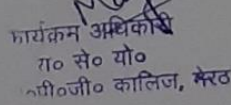 कार्यक्रम अधिकारी
रा० से० यो०
पी०जी० कालिज, मेरठ